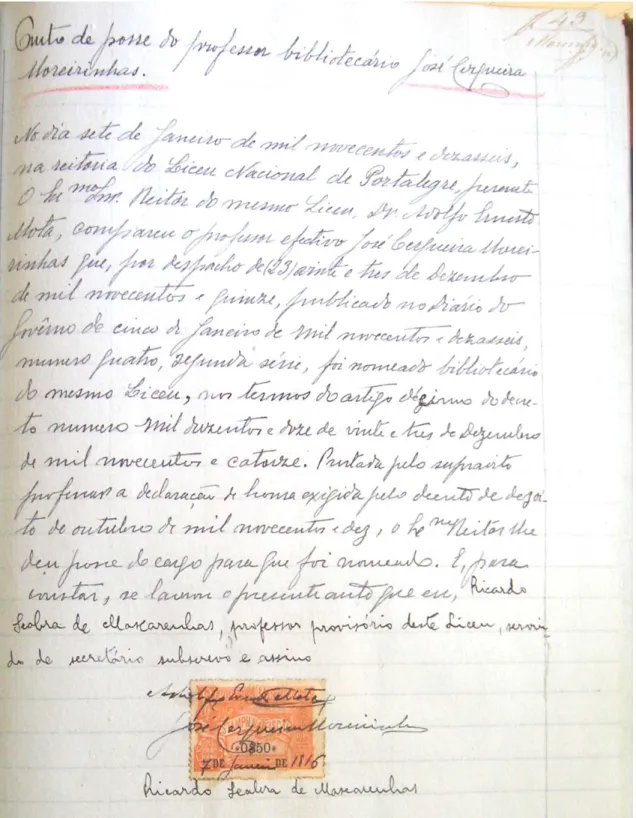 Auto de posse do professor bibliotecário José Cerqueira
Moreirinhas.
49
No dia sete de Janeiro de mil novecentos e dezasseis,
na reitoria do Liceu Nacional de Portalegre, perante
O Ex.mo Snr. Reitor do mesmo Liceu, Dr. Adolfo Ernesto
Mota, compareu o professor efectivo José Cerqueira Morei-
rinhas que, por despacho de (23) vinte e tres de Dezembro
de mil novecentos e quinze, publicado no Diário do
Govêrno de cinco de Janeiro de mil novecentos e dezasseis,
numero quatro, segunda série, foi nomeado bibliotecário
do mesmo Liceu, nos termos do artigo décimo do decre-
to numero mil duzentos e doze de vinte e tres de Dezembro
de mil novecentos e catorze. Prestada pelo supradito
professor a declaração de honra exigida pelo decreto de dezoi-
to de outubro de mil novecentos e dez, o Ex.mo Reitor lhe
deu posse do cargo para que foi nomeado. E, para
constar, se lavrou o presente auto que eu, Ricardo
Seabra de Mascarenhas, professor provisório deste Liceu, servin-
do de secretário subscrevo e assino
Adolfo Ernesto Mota
José Cerqueira Moreirinhas
0$50
7 DE Janeiro DE 1916
Ricardo Seabra de Mascarenhas